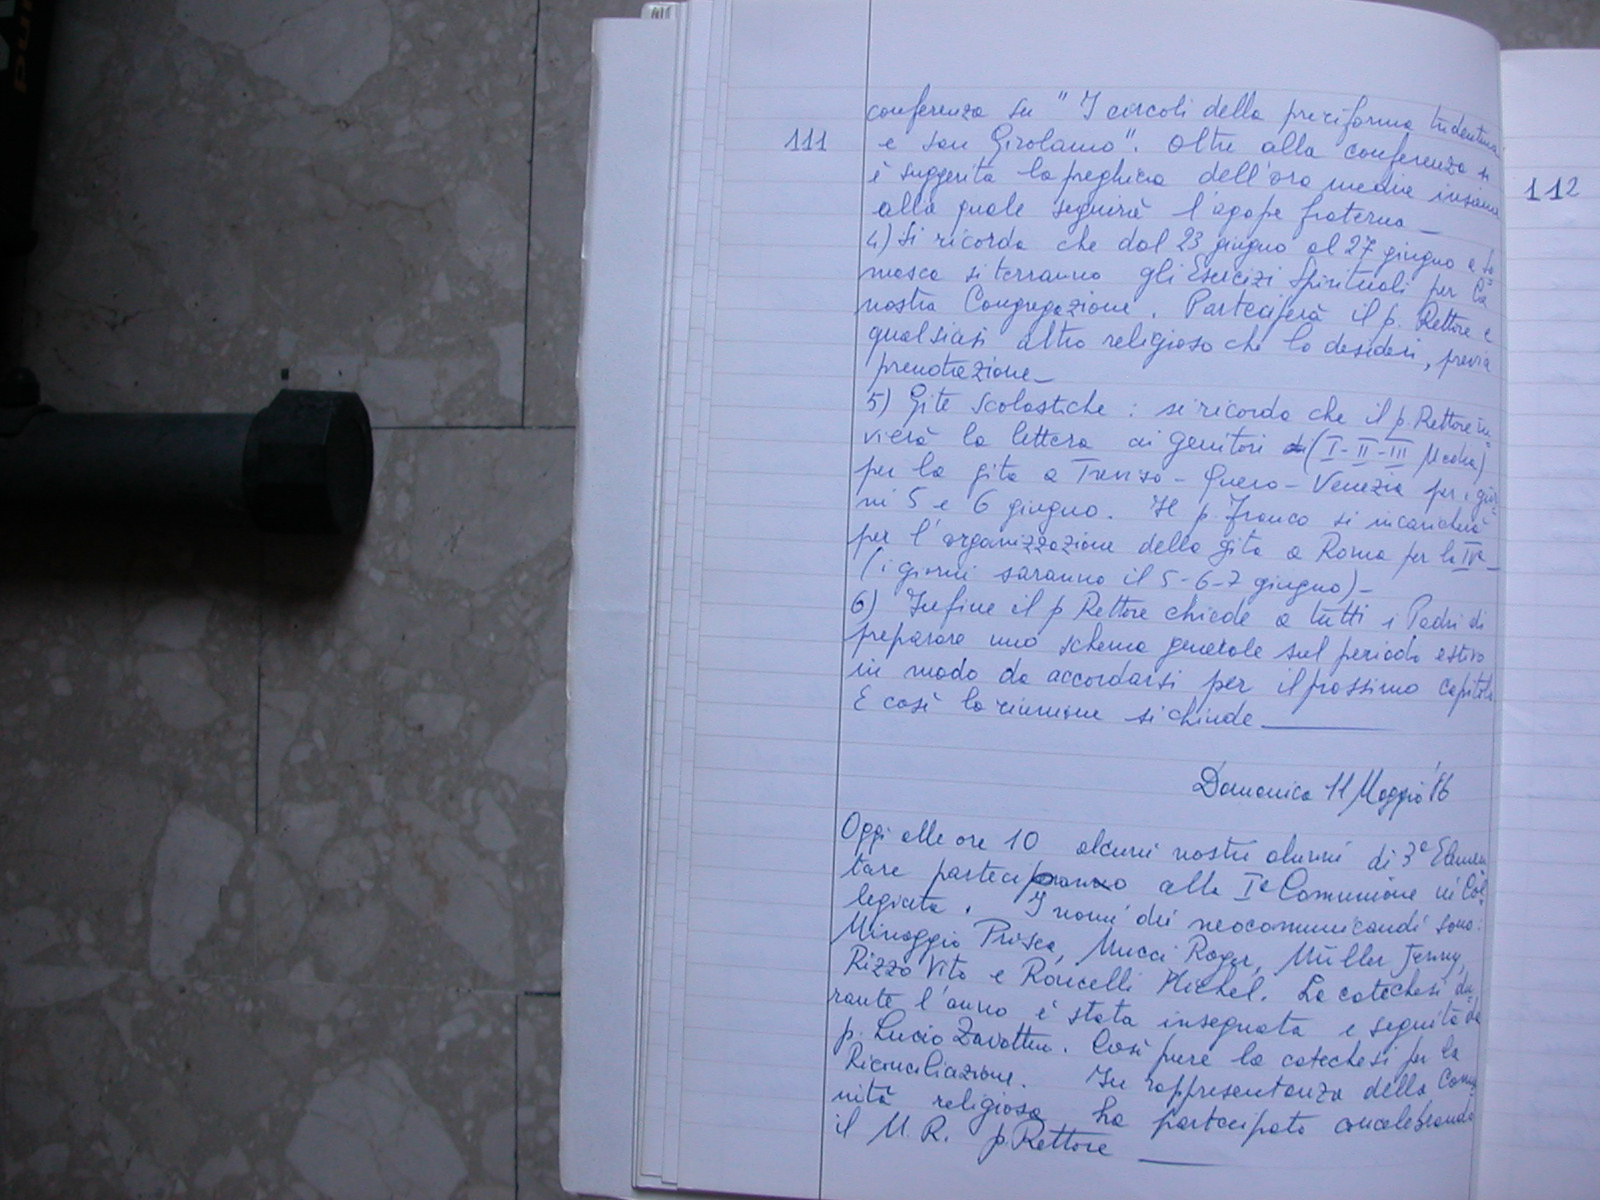 111
conferenza su "I circoli della preriforma tridentina
e san Girolamo". Oltre alla conferenza si
è suggerita la preghiera dell'ora media insieme
alla quale seguirà l'agape fraterna_
4) Si ricorda che dal 23 giugno al 27 giugno a So=
masca si terranno gli Esercizi Spirituali per la
nostra Congregazione. Parteciperà il p. Rettore e
qualsiasi altro religioso che lo desideri, previa
prenotazione_
5) Gite Scolastiche: si ricorda che il p. Rettore in=
vierà la lettera ai genitori (I-II-III Media)
per la gita a Treviso - Quero - Venezia per i gior=
ni 5 e 6 giugno. Il p. Franco si incaricherà
per l'organizzazione della gita a Roma per la IVa_
(i giorni saranno il 5-6-7 giugno)_
6) Infine il p. Rettore chiede a tutti i Padri di
preparare uno schema generale sul periodo estivo
in modo da accordarsi per il prossimo capitolo
E così la riunione si chiude_
Domenica 11 Maggio '86
Oggi alle ore 10 alcuni nostri alunni di 3ª Elemen
tare partecipano alla Iª Comunione in Col=
legiata. I nomi dei neocomunicandi sono:
Minoggio Prisca, Mucci Roger, Müller Jenny,
Rizzo Vito e Roncelli Michel. La catechesi du=
rante l'anno è stata insegnata e seguita da
p. Lucio Zavattin. Così pure la catechesi per la
Riconciliazione. In rappresentanza della Comu=
nità religiosa ha partecipato concelebrando
il M. R. p. Rettore_
112